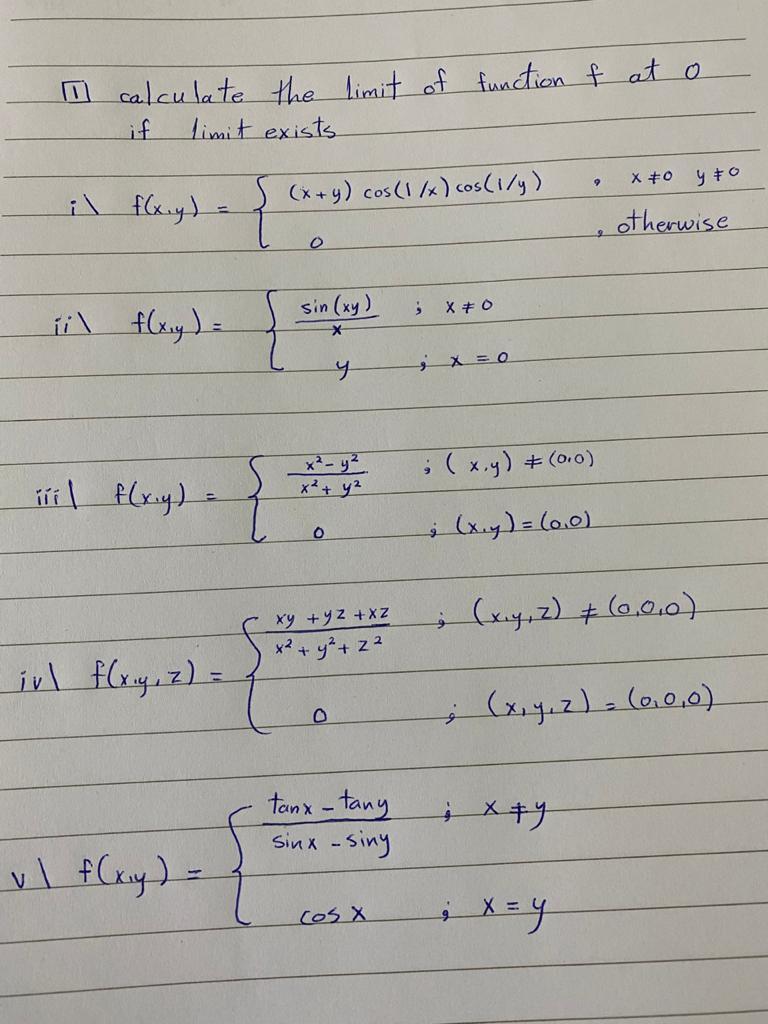 1 calculate the limit of function f at 0
if limit exists
i\ f(x,y) = { (x+y) cos(1/x) cos(1/y) , x≠0 y≠0
0 , otherwise
ii\ f(x,y) = { sin(xy)/x ; x ≠ 0
y ; x = 0
iii\ f(x,y) = { x²-y²/x²+y² ; (x,y) ≠ (0,0)
0 ; (x,y) = (0,0)
iv\ f(x,y,z) = { xy+yz+xz/x²+y²+z² ; (x,y,z) ≠ (0,0,0)
0 ; (x,y,z) = (0,0,0)
v\ f(x,y) = { tanx - tany/sinx - siny ; x ≠ y
cosx ; x = y